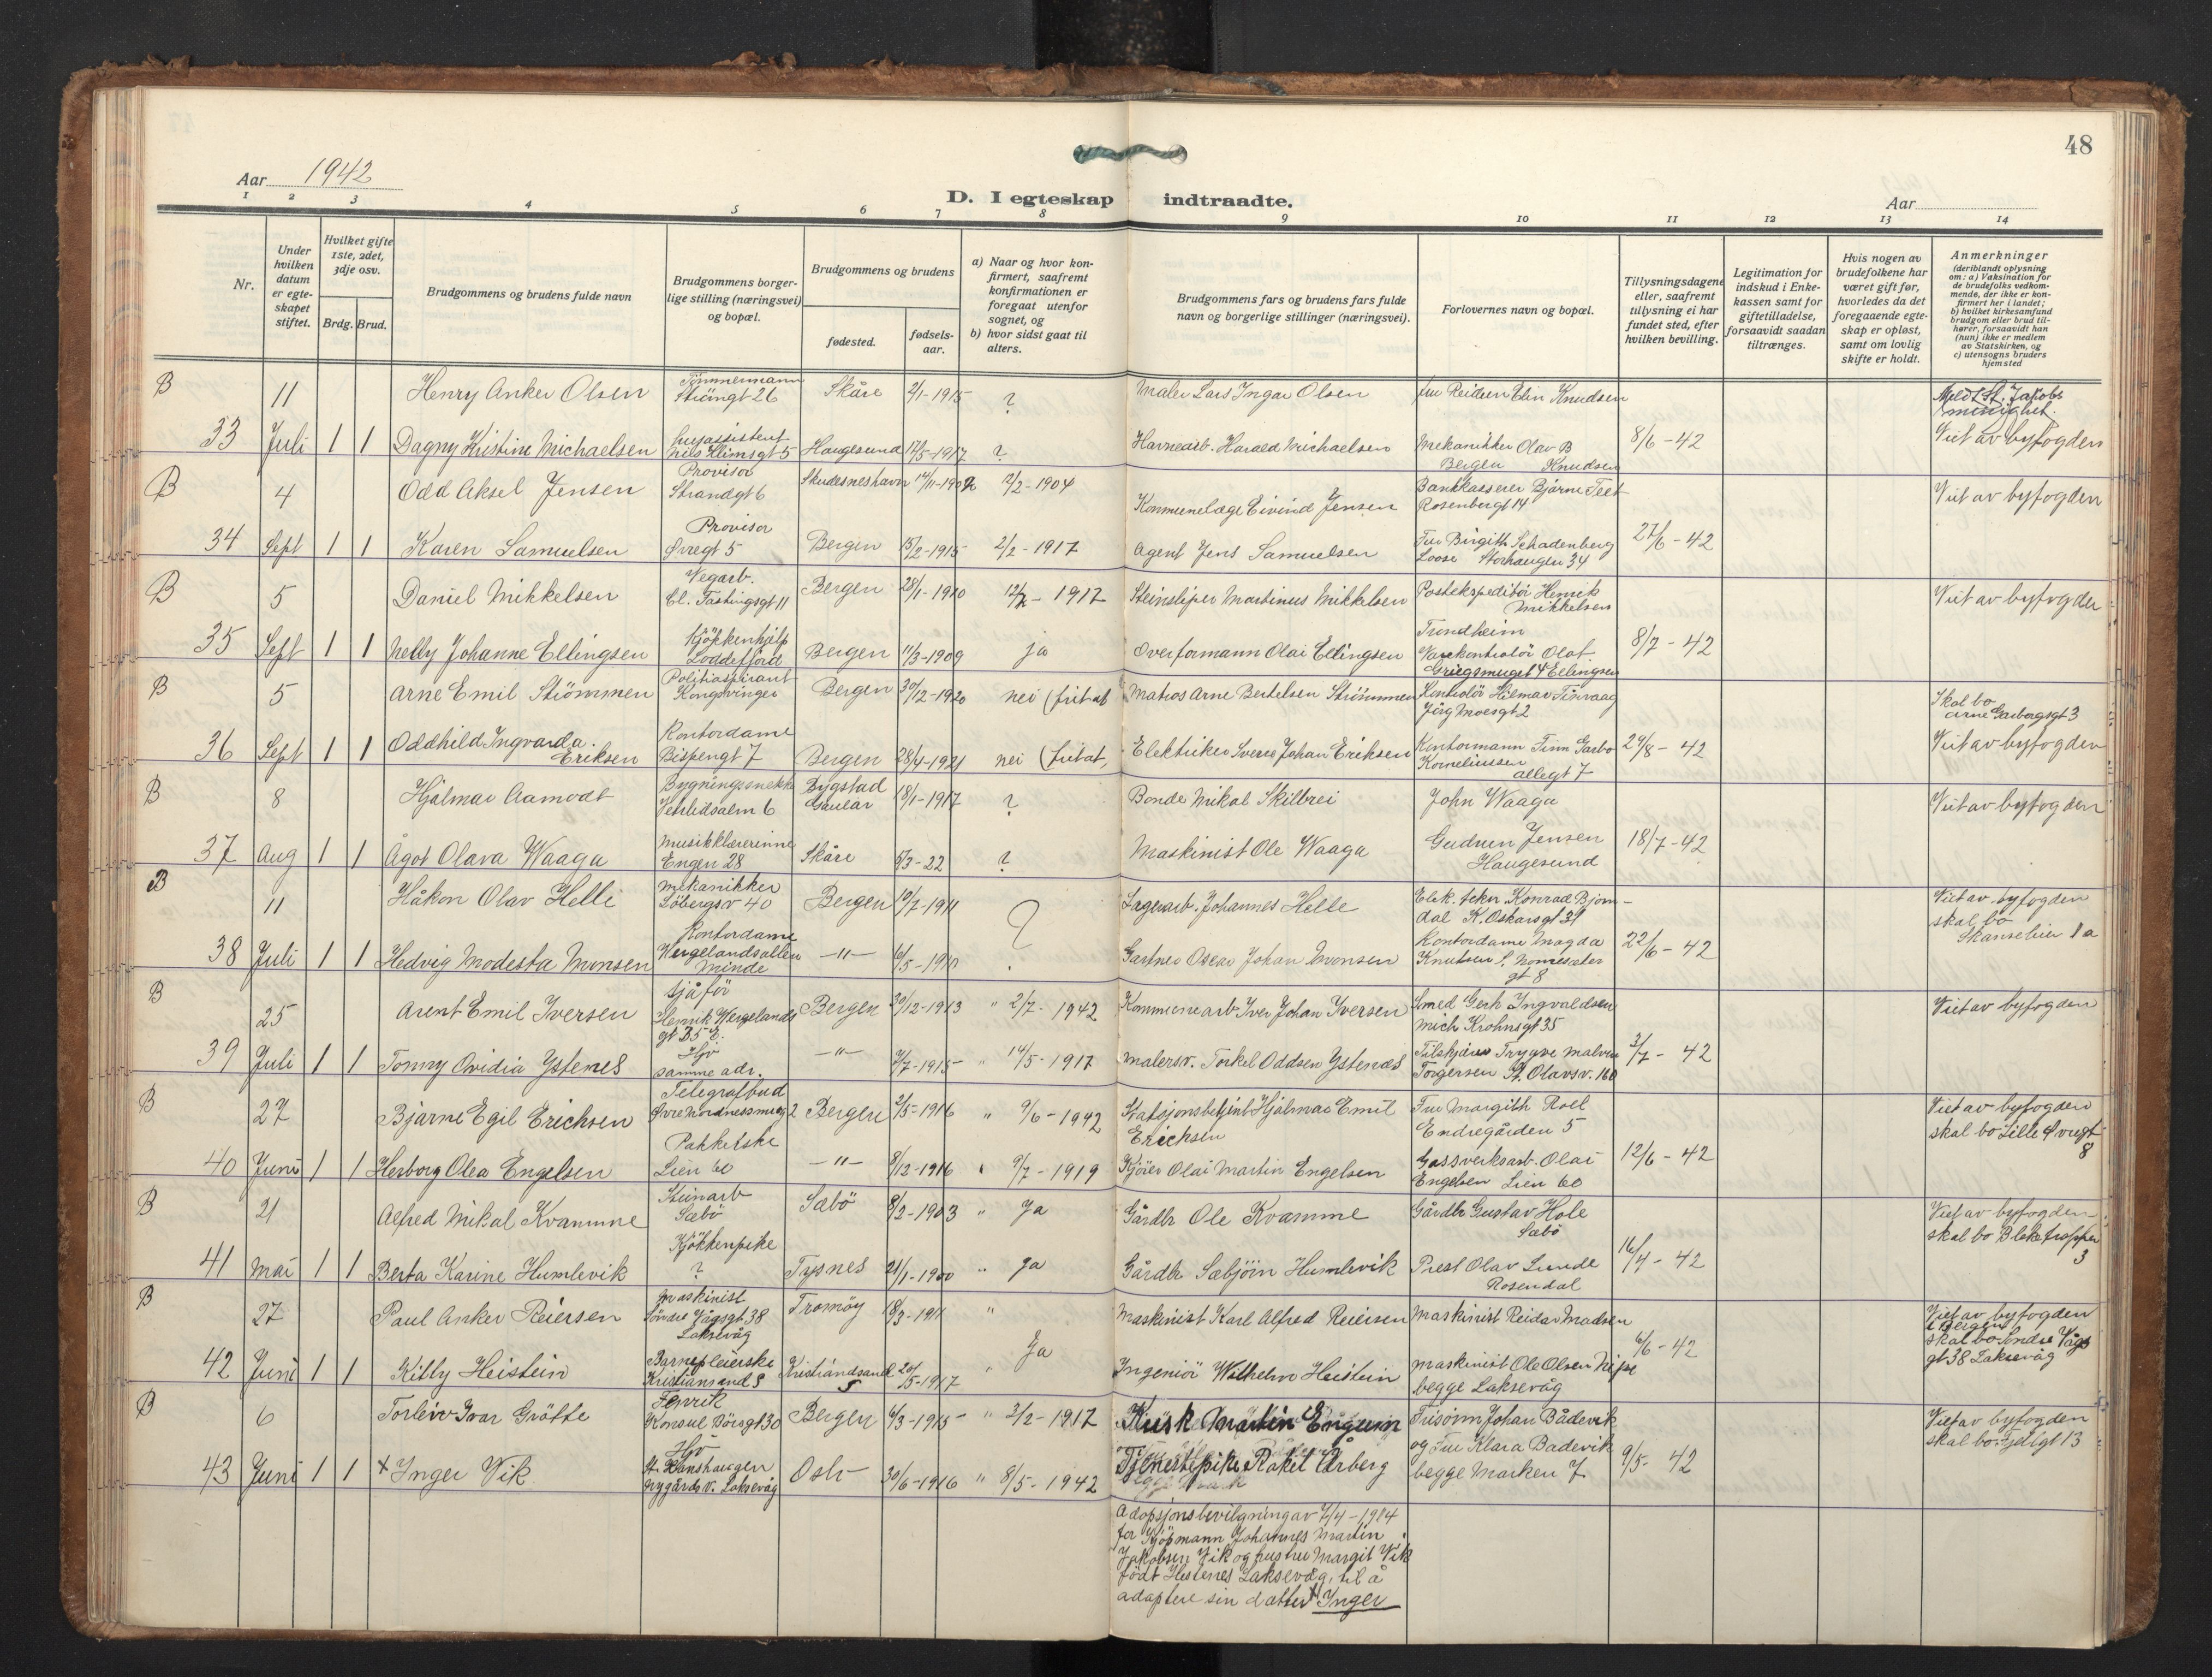 48
Aar 1942
D. I egteskap indtraadte.
Aar
1 2 3 4 5 6 7 8 9 10 11 12 13 14
Nr.
Under hvilken datum er egteskapet stiftet.
Hvilket gifte 1ste, 2det, 3dje osv.
Brdg. Brud.
Brudgommens og brudens fulde navn
Brudgommens borgerlige stilling (næringsvei) og bopæl.
Brudgommens og brudens
fødested.
fødselsaar.
a) Naar og hvor konfirmert, saafremt konfirmationen er foregaat utenfor sognet, og
b) hvor sidst gaat til alters.
Brudgommens fars og brudens fars fulde navn og borgerlige stillinger (næringsvei).
Forlovernes navn og bopæl.
Tillysningsdagene eller, saafremt tillysning ei har fundet sted, efter hvilken bevilling.
Legitimation for indskud i Enkekassen samt for giftetilladelse, forsaavidt saadan tiltrænges.
Hvis nogen av brudefolkene har været gift før, hvorledes da det foregaaende egteskap er opløst, samt om lovlig skifte er holdt.
Anmerkninger (deriblandt oplysning om: a) Vaksination for de brudefolks vedkommende, der ikke er konfirmert her i landet; b) hvilket kirkesamfund brudgom eller brud tilhører, forsaavidt han (hun) ikke er medlem av Statskirken, og c) utensogns bruders hjemsted
B 11 Henry Anker Olsen Tömmermann Strangt 26 Skåre 2/1-1915 ? Maler Lars Ingar Olsen fru Reidun Elin Knudsen Meldt St. Jacobs menighet.
33 Juli 1 1 Dagny Kristine Michaelsen husassistent Nils Klimsgt 5 Haugesund 17/5-1917 ? Havnearb. Harald Michaelsen Mekanikker Olav B Knudsen Bergen 8/6-42 Viet av byfogden
B 4 Odd Aksel Jensen Provisor Strandgt 6 Skudeneshavn 14/11-1902 2/2-1904 Kommunelæge Eivind Jensen Bankkasserer Bjarne Teet Rosenbergt 14 Viet av byfogden
34 Sept 1 1 Karen Samuelsen Provisor Øvregt 5 Bergen 15/2-1915 2/2-1917 Agent Jens Samuelsen Fru Birgith Schadenberg Loose Storhaugen 34 27/6-42
B 5 Daniel Mikkelsen Vegarb. Cl. Fastingsgt 11 Bergen 28/1-1910 12/7-1917 Steinsliper Martinus Mikkelsen Postekspeditör Henrik Mikkelsen Trondheim Viet av byfogden
35 Sept 1 1 Nelly Johanne Ellingsen Kjökkenhjelp Loddefjord Bergen 11/3-1909 ja Overformann Olai Ellingsen Varekontrolör Olaf Ellingsen Griegsmuget 4 8/7-42
B 5 Arne Emil Strömmen Politiaspirant Kongsvinger Bergen 30/12-1920 nei (fritat Matros Arne Bertelsen Strömmen Kontrolör Hilmar Tinvaag Jörg Moesgt 2 Skal bo Arne Garborgsgt 3
36 Sept 1 1 Oddhild Ingvarda Eriksen Kontordame Bispengt 7 Bergen 28/4-1921 nei (fritat, Elektriker Sverre Johan Eriksen Kontormann Finn Garbo Korneliussen allegt 7 29/8-42 Viet av byfogden
B 8 Hjalmar Aamodt Bygningssnekk Vetrlidsalm 6 Bygstad Gaular 18/1-1917 ? Bonde Mikal Skilbrei John Waaga Viet av byfogden
37 Aug 1 1 Ågot Olava Waaga Musikklærerinne Engen 28 Skåre 5/3-22 ? Maskinist Ole Waaga Gudrun Jensen Haugesund 18/7-42
B 11 Håkon Olav Helle Mekanikker Löbergsv 40 Bergen 19/7-1911 ? Lagerarb. Johannes Helle Elek. tekn. Konrad Bjorndal K. Oskarsgt 31 Viet av byfogden skal bo Skanselien 1 a
38 Juli 1 1 Hedvig Modesta Monsen Kontordame Wergelandsalleen Minde -"- 6/5-1910 Gartner Oscar Johan Monsen Kontordame Magda Knutsen S. Nomesæter gt 8 22/6-42
B 25 Arent Emil Iversen sjåför Henrik Wergelands gt B5 E. Bergen 30/12-1913 " 2/7-1942 Kommunearb Iver Johan Iversen Smed Gerh Ingvaldsen Mich Krohnsgt 35 Viet av byfogden
39 Juli 1 1 Tonny Ovidia Ystenes Hjv samme adr. -"- 7/7-1915 " 14/5-1917 Malersv. Torkel Oddsen Ystenæs Tilskjærer Trygve Malvin Torgersen St. Olavsv. 160 3/7-42
B 27 Bjarne Egil Erichsen Telegrafbud Øvre Nordnessmug 2 Bergen 2/5-1916 " 9/6-1942 Stasjonsbetjent Hjalmar Emil Erichsen Fru Margith Roll Endregården 5 Viet av byfogden skal bo Lille Øvregt 8
40 Juni 1 1 Herborg Olea Engelsen Pakkerske Lien 60 -"- 8/12-1916 " 9/7-1919 Kjörer Olai Martin Engelsen Gassverksarb. Olai Engelsen Lien 60 12/6-42
B 21 Alfred Mikal Kvamme Steinarb Sæbö Sæbö 8/2-1903 " Ja Gårdbr Ole Kvamme Gårdbr Gustav Hole Sæbö Viet av byfogden skal bo Bleketrappen 3
41 Mai 1 1 Berta Karine Humlevik Kjökkenpike ? Tysnes 21/1-1900 " Ja Gårdbr Sæbjörn Humlevik Prest Olav Lunde Rosendal 16/4-42
B 27 Paul Anker Reiersen Maskinist Söndre Vågsgt 38 Laksevåg Tromöy 18/3-1911 " Maskinist Karl Alfred Reiersen Maskinist Reidar Madsen Viet av byfogden i Bergen skal bo Söndre Vågs gt 38 Laksevåg
42 Juni 1 1 Killy Heistein Barnepleierske Kristiansand S Kristiandsand S 20/5-1917 " Ja Ingeniör Wilhelm Heistein Maskinist Ole Olsen Nipe begge Laksevåg 6/6-42
B 6 Torleiv Ivar Grötte Fenrik Konsul Börsgt 30 Bergen 6/3-1915 " 3/2-1917 Kusk Martin Engum Frisörm Johan Bådevik Viet av byfogden skal bo Fjelgt 13
43 Juni 1 1 x Inger Vik Hjv St. Hanshaugen Nygårdsv. Laksevåg Oslo 30/6-1916 " 8/5-1942 Tjenestepike Rakel Årberg og Fru Klara Badevik begge Marken 7 9/5-42
Adopsjonsbevilgning av 7/4-1914
for Kjöpmann Johannes Martin
Jakobsen Vik og hustru Margit Vik
født Hestenes Laksevåg, til å
adoptere sin datter x Inger